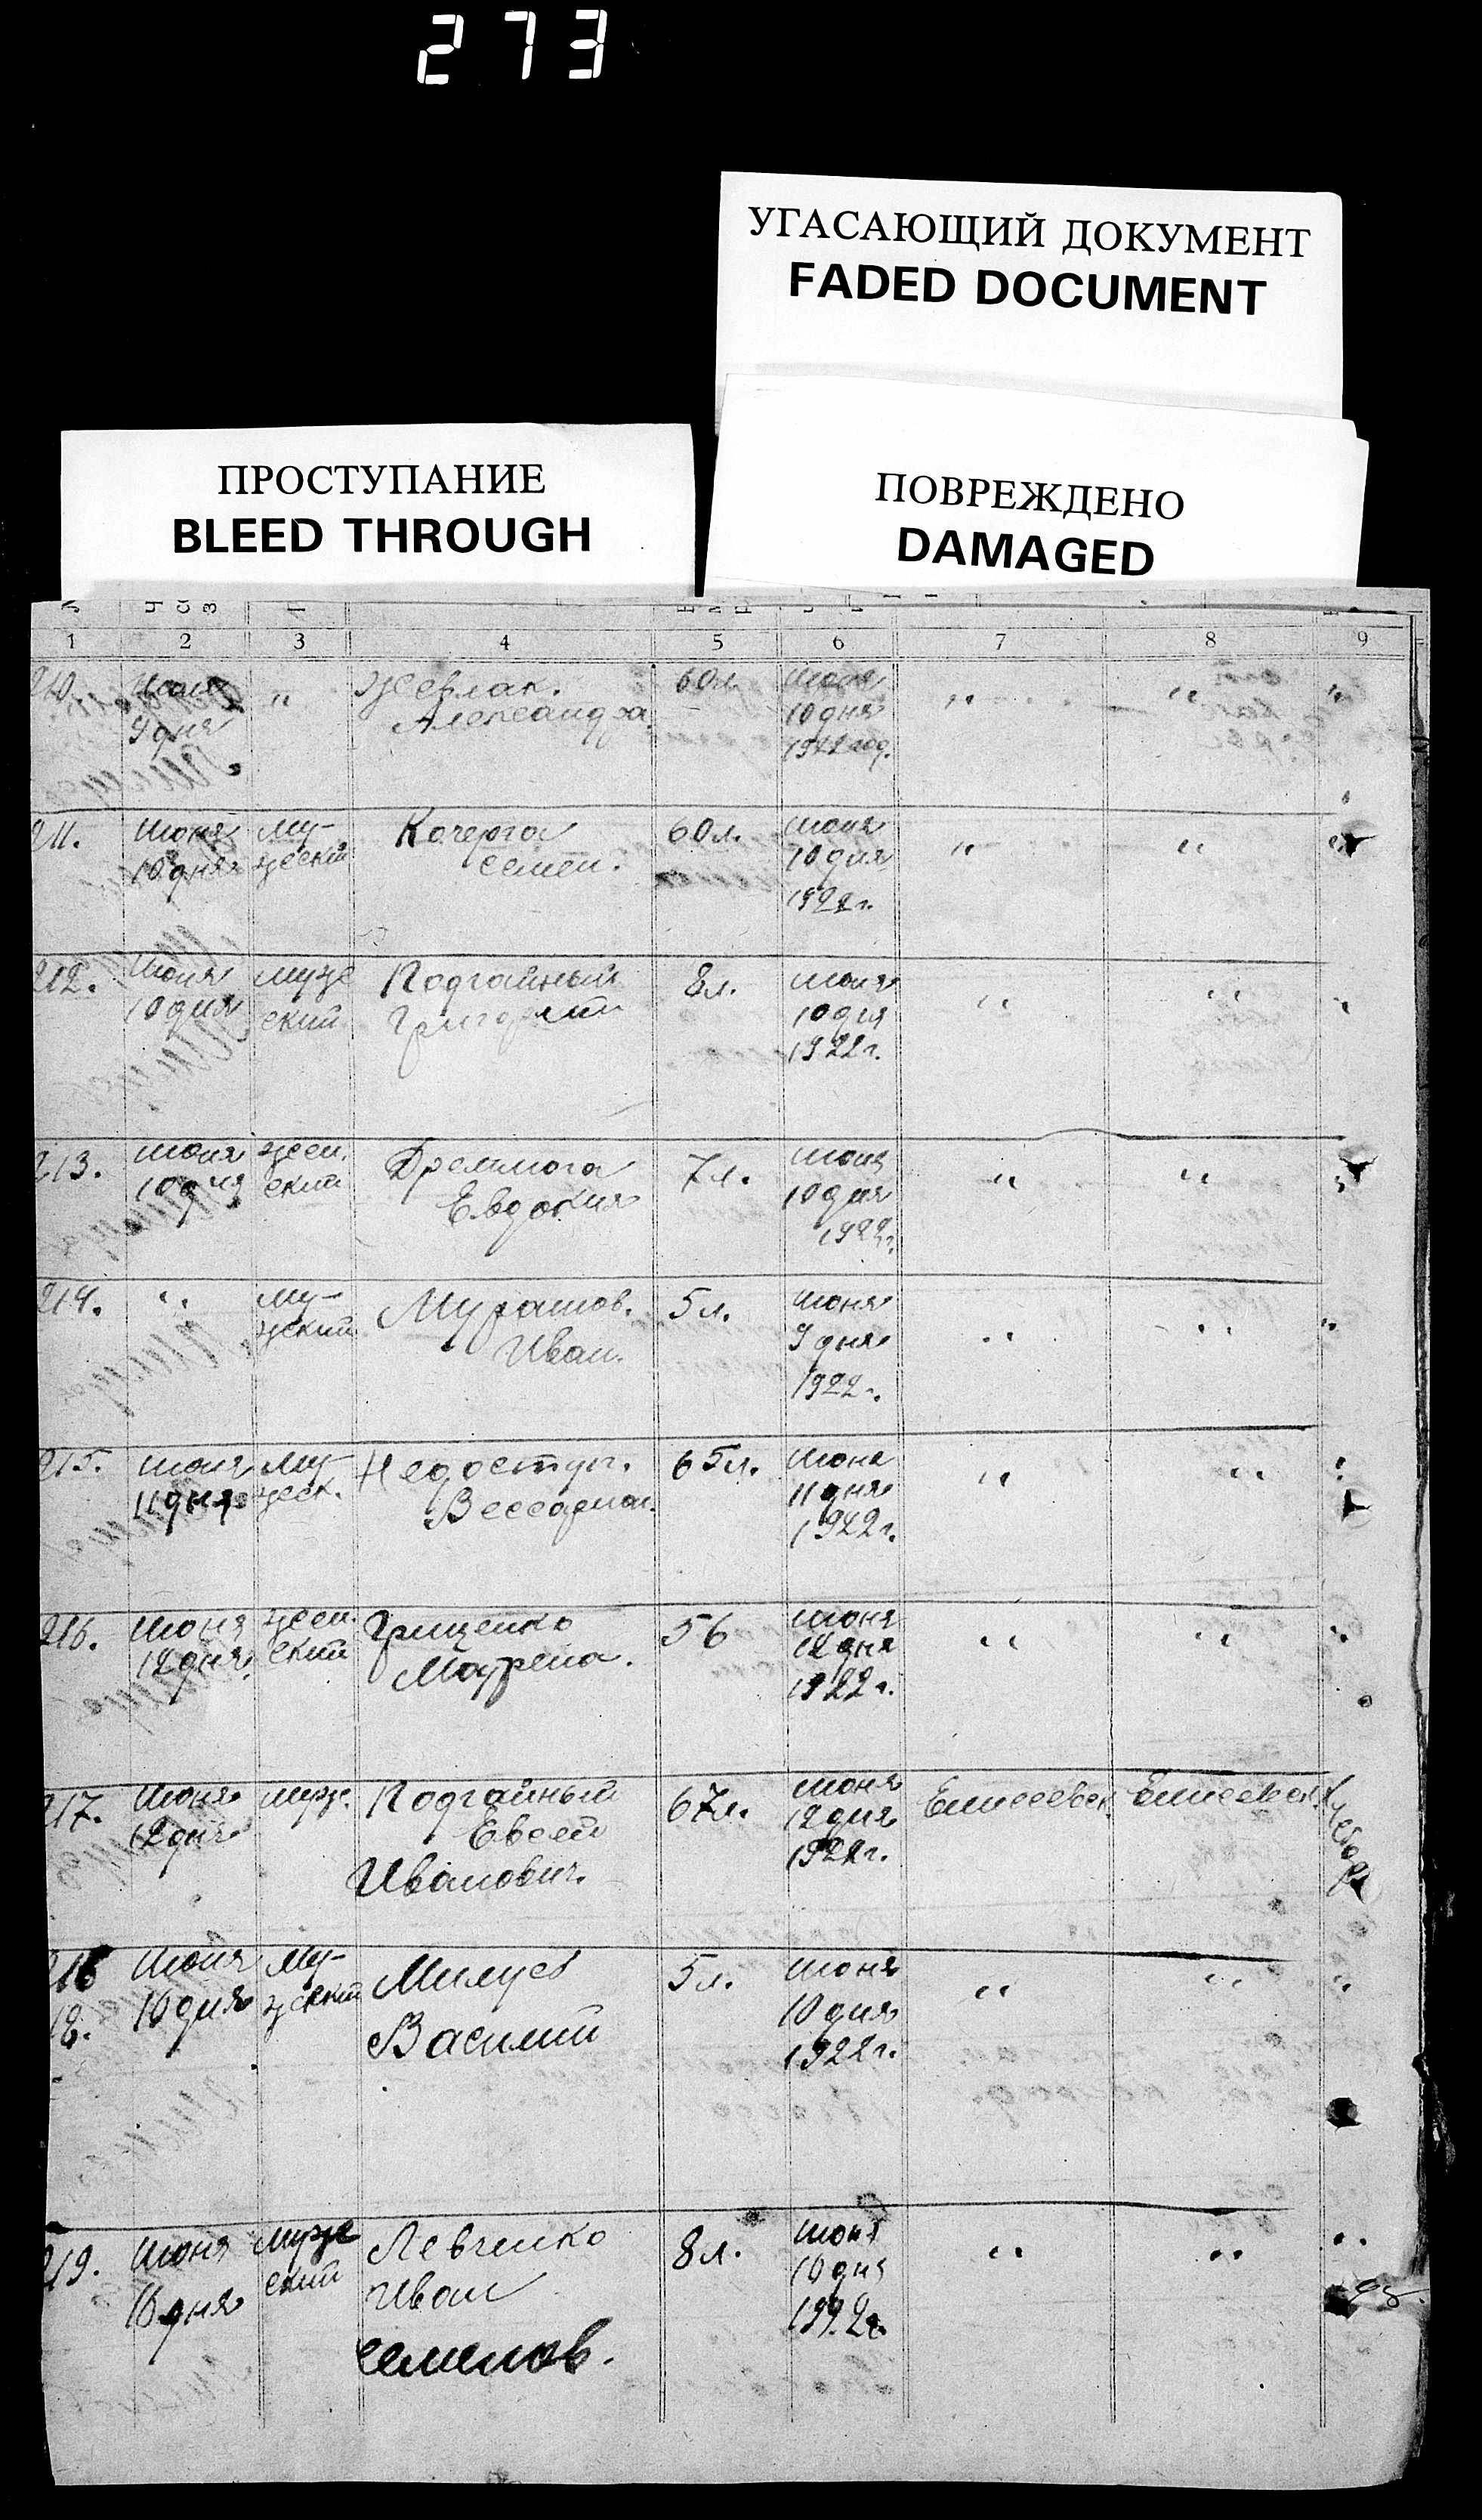 273
УГАСАЮЩИЙ ДОКУМЕНТ
FADED DOCUMENT
ПРОСТУПАНИЕ
BLEED THROUGH
ПОВРЕЖДЕНО
DAMAGED
1 2 3 4 5 6 7 8 9
210. Июня 9 дня " Александра 60 л. Июня 10 дня 1922 год. " " "
211. Июня 10 дня му-жеский Кочерга Семен. 60 л. Июня 10 дня 1922 г. " " "
212. Июня 10 дня муже ский Подгайный Григорий 8 л. Июня 10 дня 1922 г. " " "
213. Июня 10 дня жен. ский Дремлюга Евдокия 7 л. Июня 10 дня 1922 г. " " "
214. " му-жский Мурашов. Иван. 5 л. Июня 9 дня 1922 г. " " "
215. Июня 11 дня му-жеск. Недоступ. 65 л. Июня 11 дня 1922 г. " " "
216. Июня 12 дня жен. ский Грищенко 56 Июня 12 дня 1922 г. " " "
217. Июня 12 дня муж. Подгайный Евсей Иванович. 67 л. Июня 12 дня 1922 г.
218. Июня 10 дня му-жский Василий 5 л. Июня 10 дня 1922 г. " " "
219. Июня 10 дня муже ский Левченко Иван Семенов. 8 л. Июня 10 дня " " "